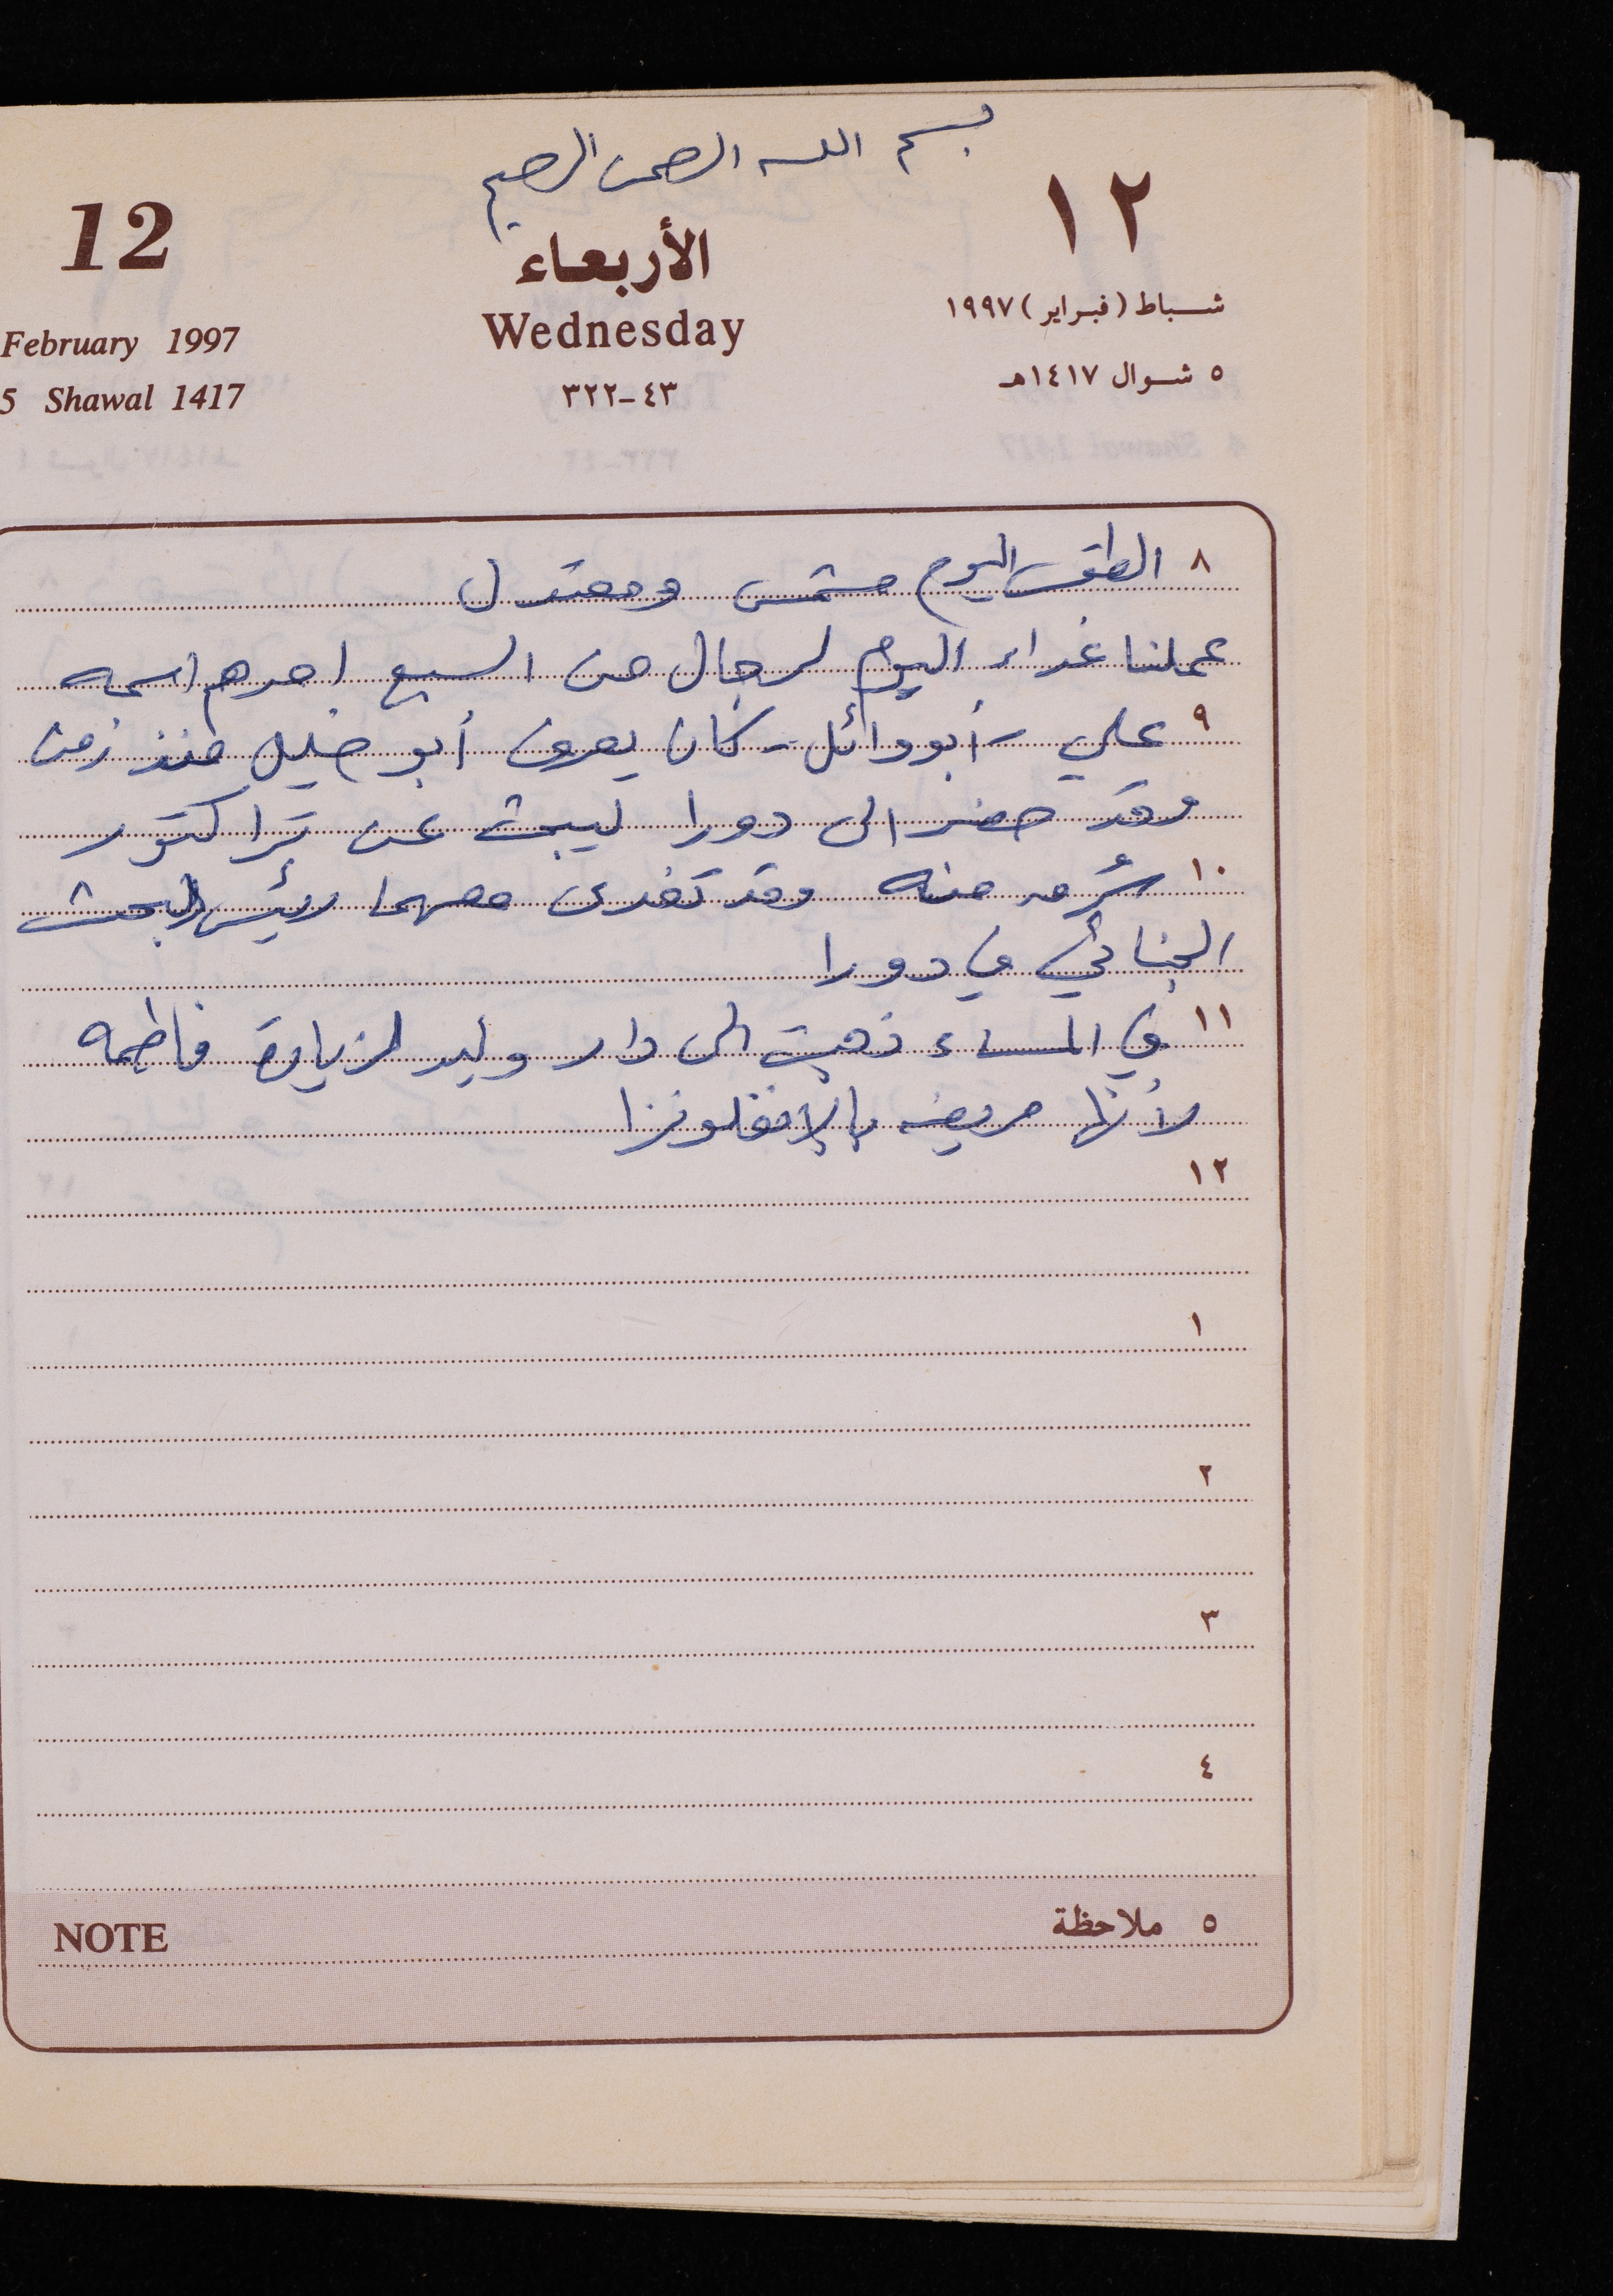 بسم الله الرحمن الرحيم
12
الأربعاء
١٢
February 1997
Wednesday
شباط (فبراير) ١٩٩٧
5 Shawal 1417
٤٣-٣٢٢
٥ شوال ١٤١٧هـ
٨ الطقس اليوم مشمس ومعتدل
عملنا غداء اليوم لرجال من السبع احدهم اسمه
٩ علي - أبو وائل - كان يعرف أبو خليل منذ زمن
وقد حضر الى دورا ليبحث عن تراكتور
١٠ سُرق منه وقد تغدى معهما رئيس البحث
الجنائي في دورا
١١ في المساء ذهبت الى دار وليد لزيارة فاطمه
لأنها مريضه بالإنفلونزا
١٢
١
٢
٣
٤
٥ ملاحظة
NOTE